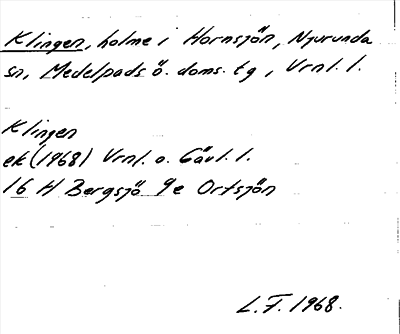 Klingen, holme i Hornsjön, Njurunda
sn, Medelpads ö. doms. tg, Vrnl. l.
Klingen
ek (1968) Vrnl. o. Gävl. l.
16 H Bergsjö 9e Ortsjön
L. F. 1968.